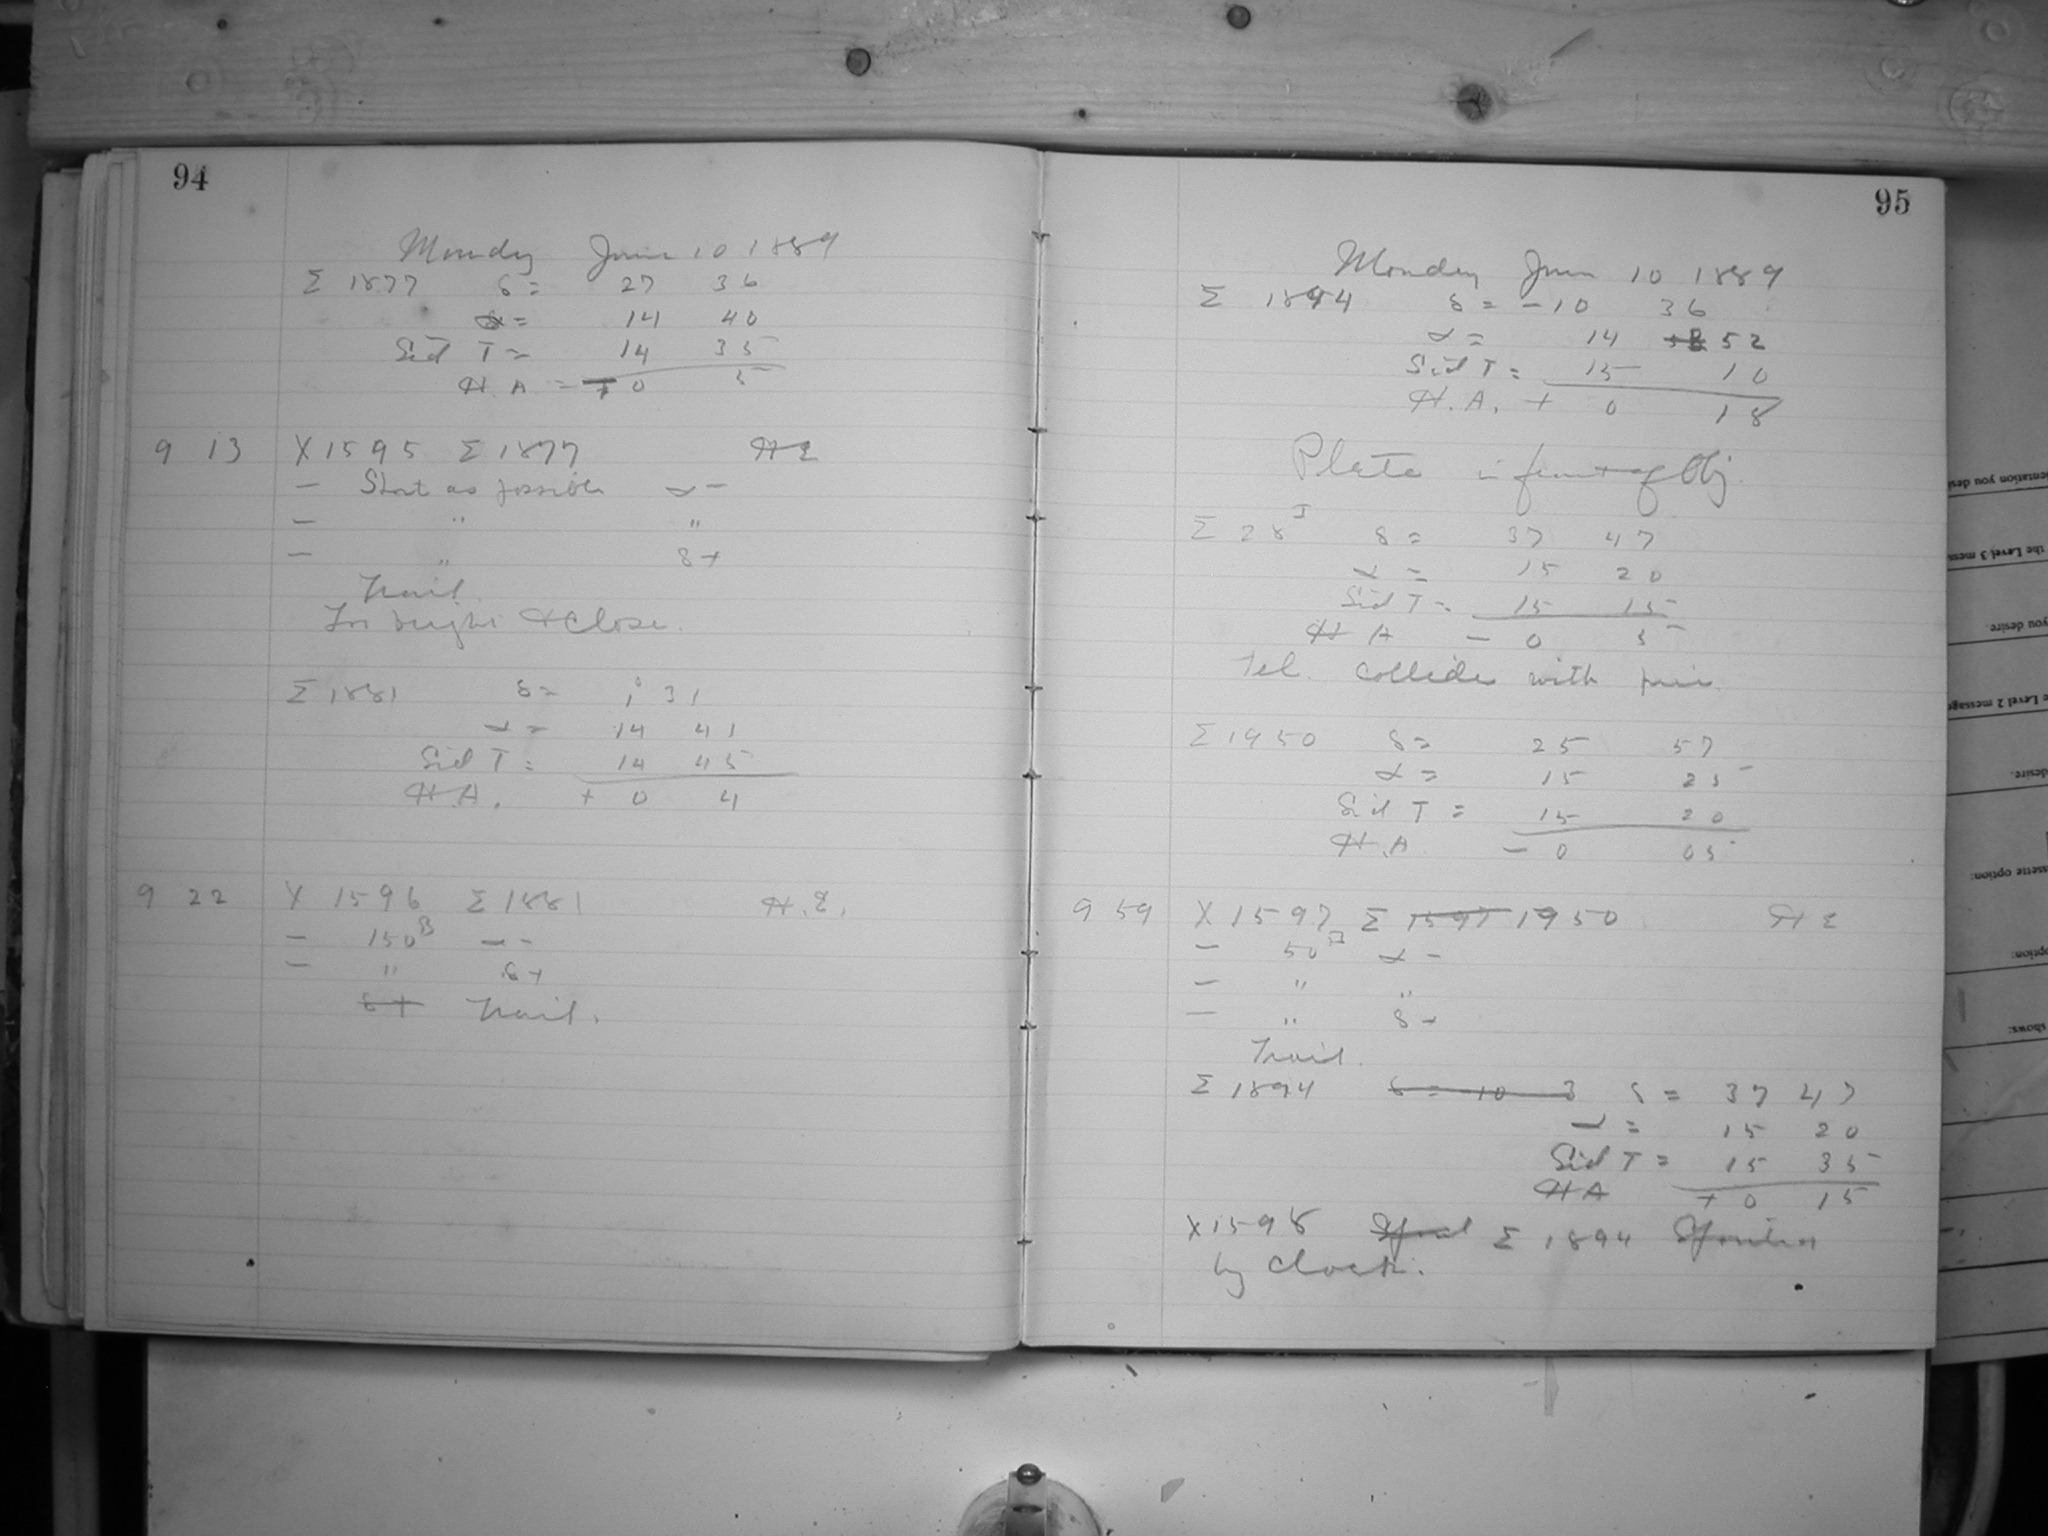 94
Monday June 10 1889
Σ 1877 δ = 27 36
α = 14 40
Sid T = 14 35
H. A = + 0 5
9 13 X 1595 Σ 1877 H E
— Short as possible α —
— " "
— " δ +
Trail.
Too bright & Close.
Σ 1881 δ = 1° 31
α = 14 41
Sid T = 14 45
H.A. + 0 4
9 22 X 1596 Σ 1881 H. E.
— 150 α -
— " δ +
δ + Trail.
95
Monday June 10 1889
Σ 1894 δ = - 10 36
α = 14 52
Sid T = 15 10
H. A. + 0 18
Plate in front of Obj.
Σ 28 I δ = 37 47
α = 15 20
Sid T = 15 15
H A — 0 5
Tel. collides with pier.
Σ 1950 δ = 25 57
α = 15 25
Sid T = 15 20
H.A — 0 05
9 59 X 1597 Σ 1597 1950 H E
— 50 α -
— " "
— " δ +
Trail.
Σ 1894 δ = 10 3 δ = 37 47
α = 15 20
Sid T = 15 35
H A + 0 15
X 1598 Σ 1894
by Clock.